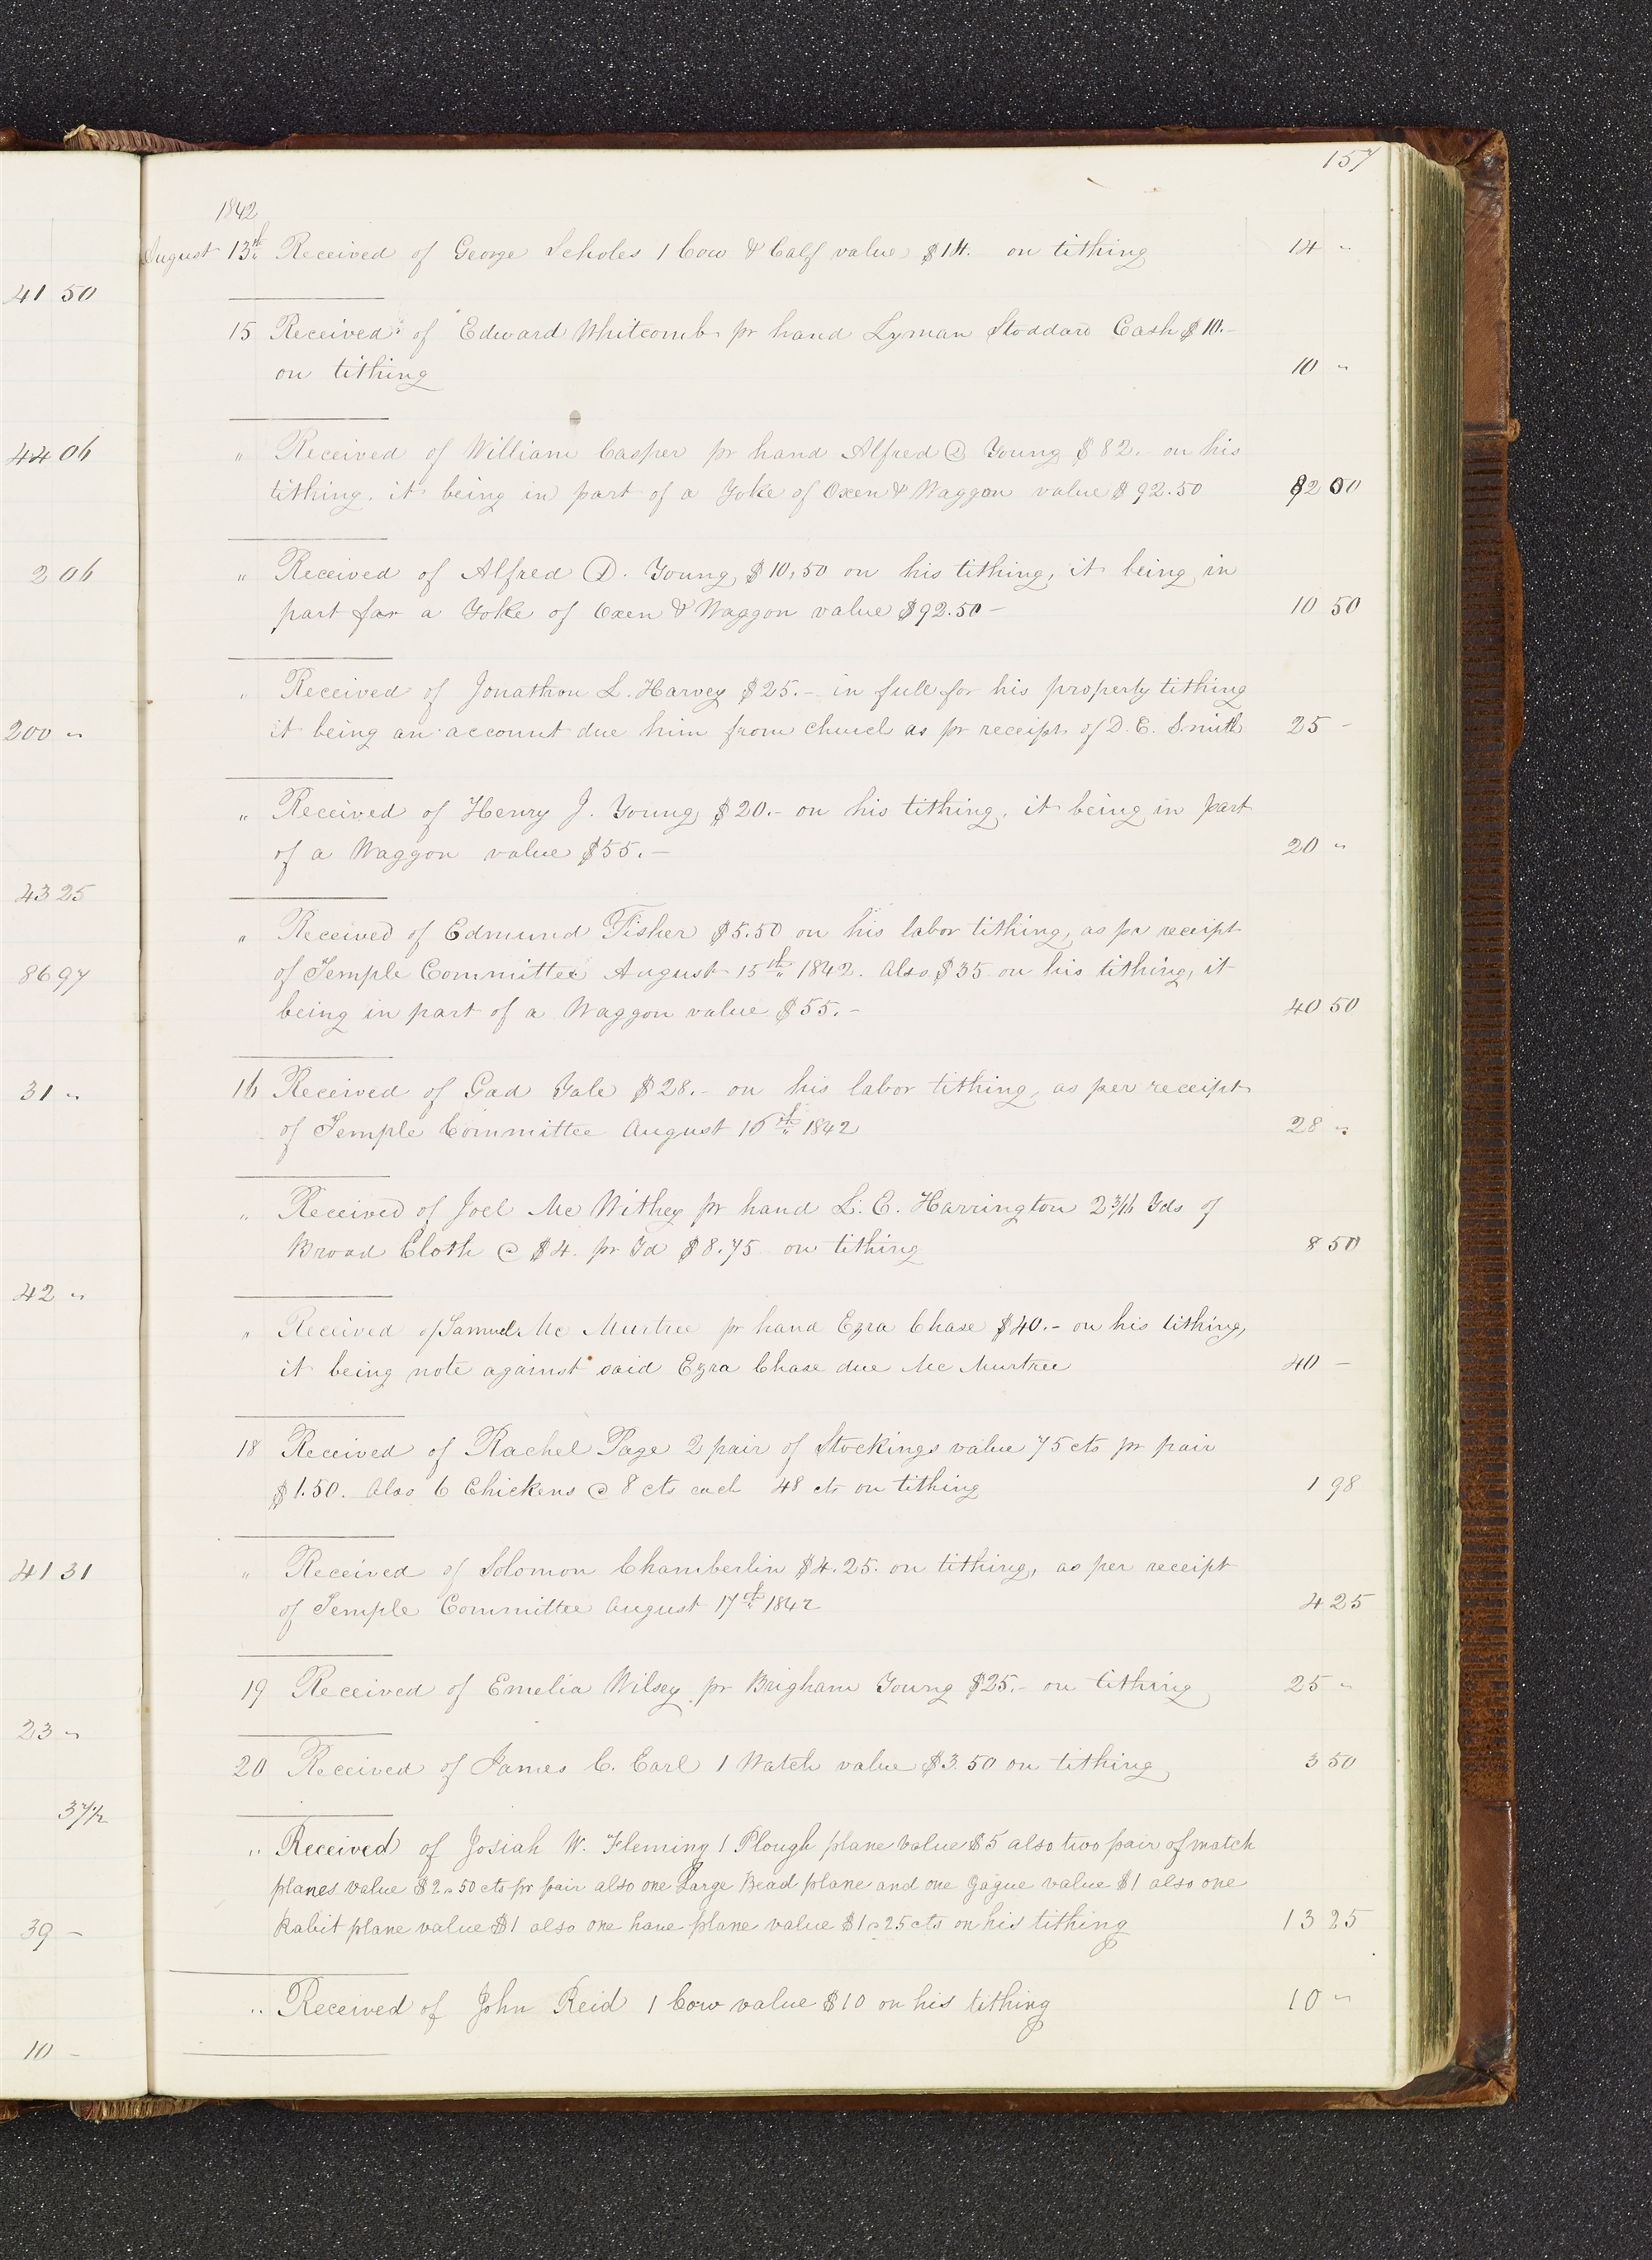 157
1842
August 13th Received of George Scholes 1 Cow & Calf value $14. on tithing 14 "
41 50
15 Received of Edward Whitcomb pr hand Lyman Stoddard Cash $10.-
on tithing 10 "
44 06
" Received of William Casper pr hand Alfred D Young $82.- on his
tithing. it being in part of a Yoke of Oxen & Waggon value $92.50 82 00
2 06
" Received of Alfred D. Young $10,50 on his tithing, it being in
part for a Yoke of Oxen & Waggon value $92.50- 10 50
" Received of Jonathon L. Harvey $25.- in full for his property tithing
200 "
it being an account due him from church as pr receipt of D. E. Smith 25 -
" Received of Henry J. Young $20.- on his tithing, it being in part
of a Waggon value $55.- 20 "
43 25
" Received of Edmund Fisher $5.50 on his labor tithing, as pr receipt
86 97
of Temple Committee August 15th 1842. Also $35 on his tithing, it
being in part of a Waggon value $55.- 40 50
31 "
16 Received of Gad Yale $28.- on his labor tithing, as per receipt
of Temple Committee August 16th 1842 28 "
" Received of Joel Mc Withey pr hand L. E. Harrington 2 3/16 Yds of
Broad Cloth @ $4. pr Yd $8.75 on tithing 8 50
42 "
" Received of Samuel Mc Murtree pr hand Ezra Chase $40.- on his tithing,
it being note against said Ezra Chase due Mc Murtree 40 -
18 Received of Rachel Page 2 pair of Stockings value 75 cts pr pair
$1.50. Also 6 Chickens @ 8 cts each 48 cts on tithing 1 98
41 31
" Received of Solomon Chamberlin $4.25. on tithing, as per receipt
of Temple Committee August 17th 1842 4 25
19 Received of Emelia Wilsey pr Brigham Young $25.- on tithing 25 "
23 "
20 Received of James C. Earl 1 Watch value $3.50 on tithing 3 50
37 1/2
" Received of Josiah W. Fleming 1 Plough plane value $5 also two pair of match
planes value $2 " 50 cts pr pair also one Large Bead plane and one gague value $1 also one
39 -
Rabit plane value $1 also one have plane value $1 " 25 cts on his tithing 13 25
" Received of John Reid 1 Cow value $10 on his tithing 10 "
10 -